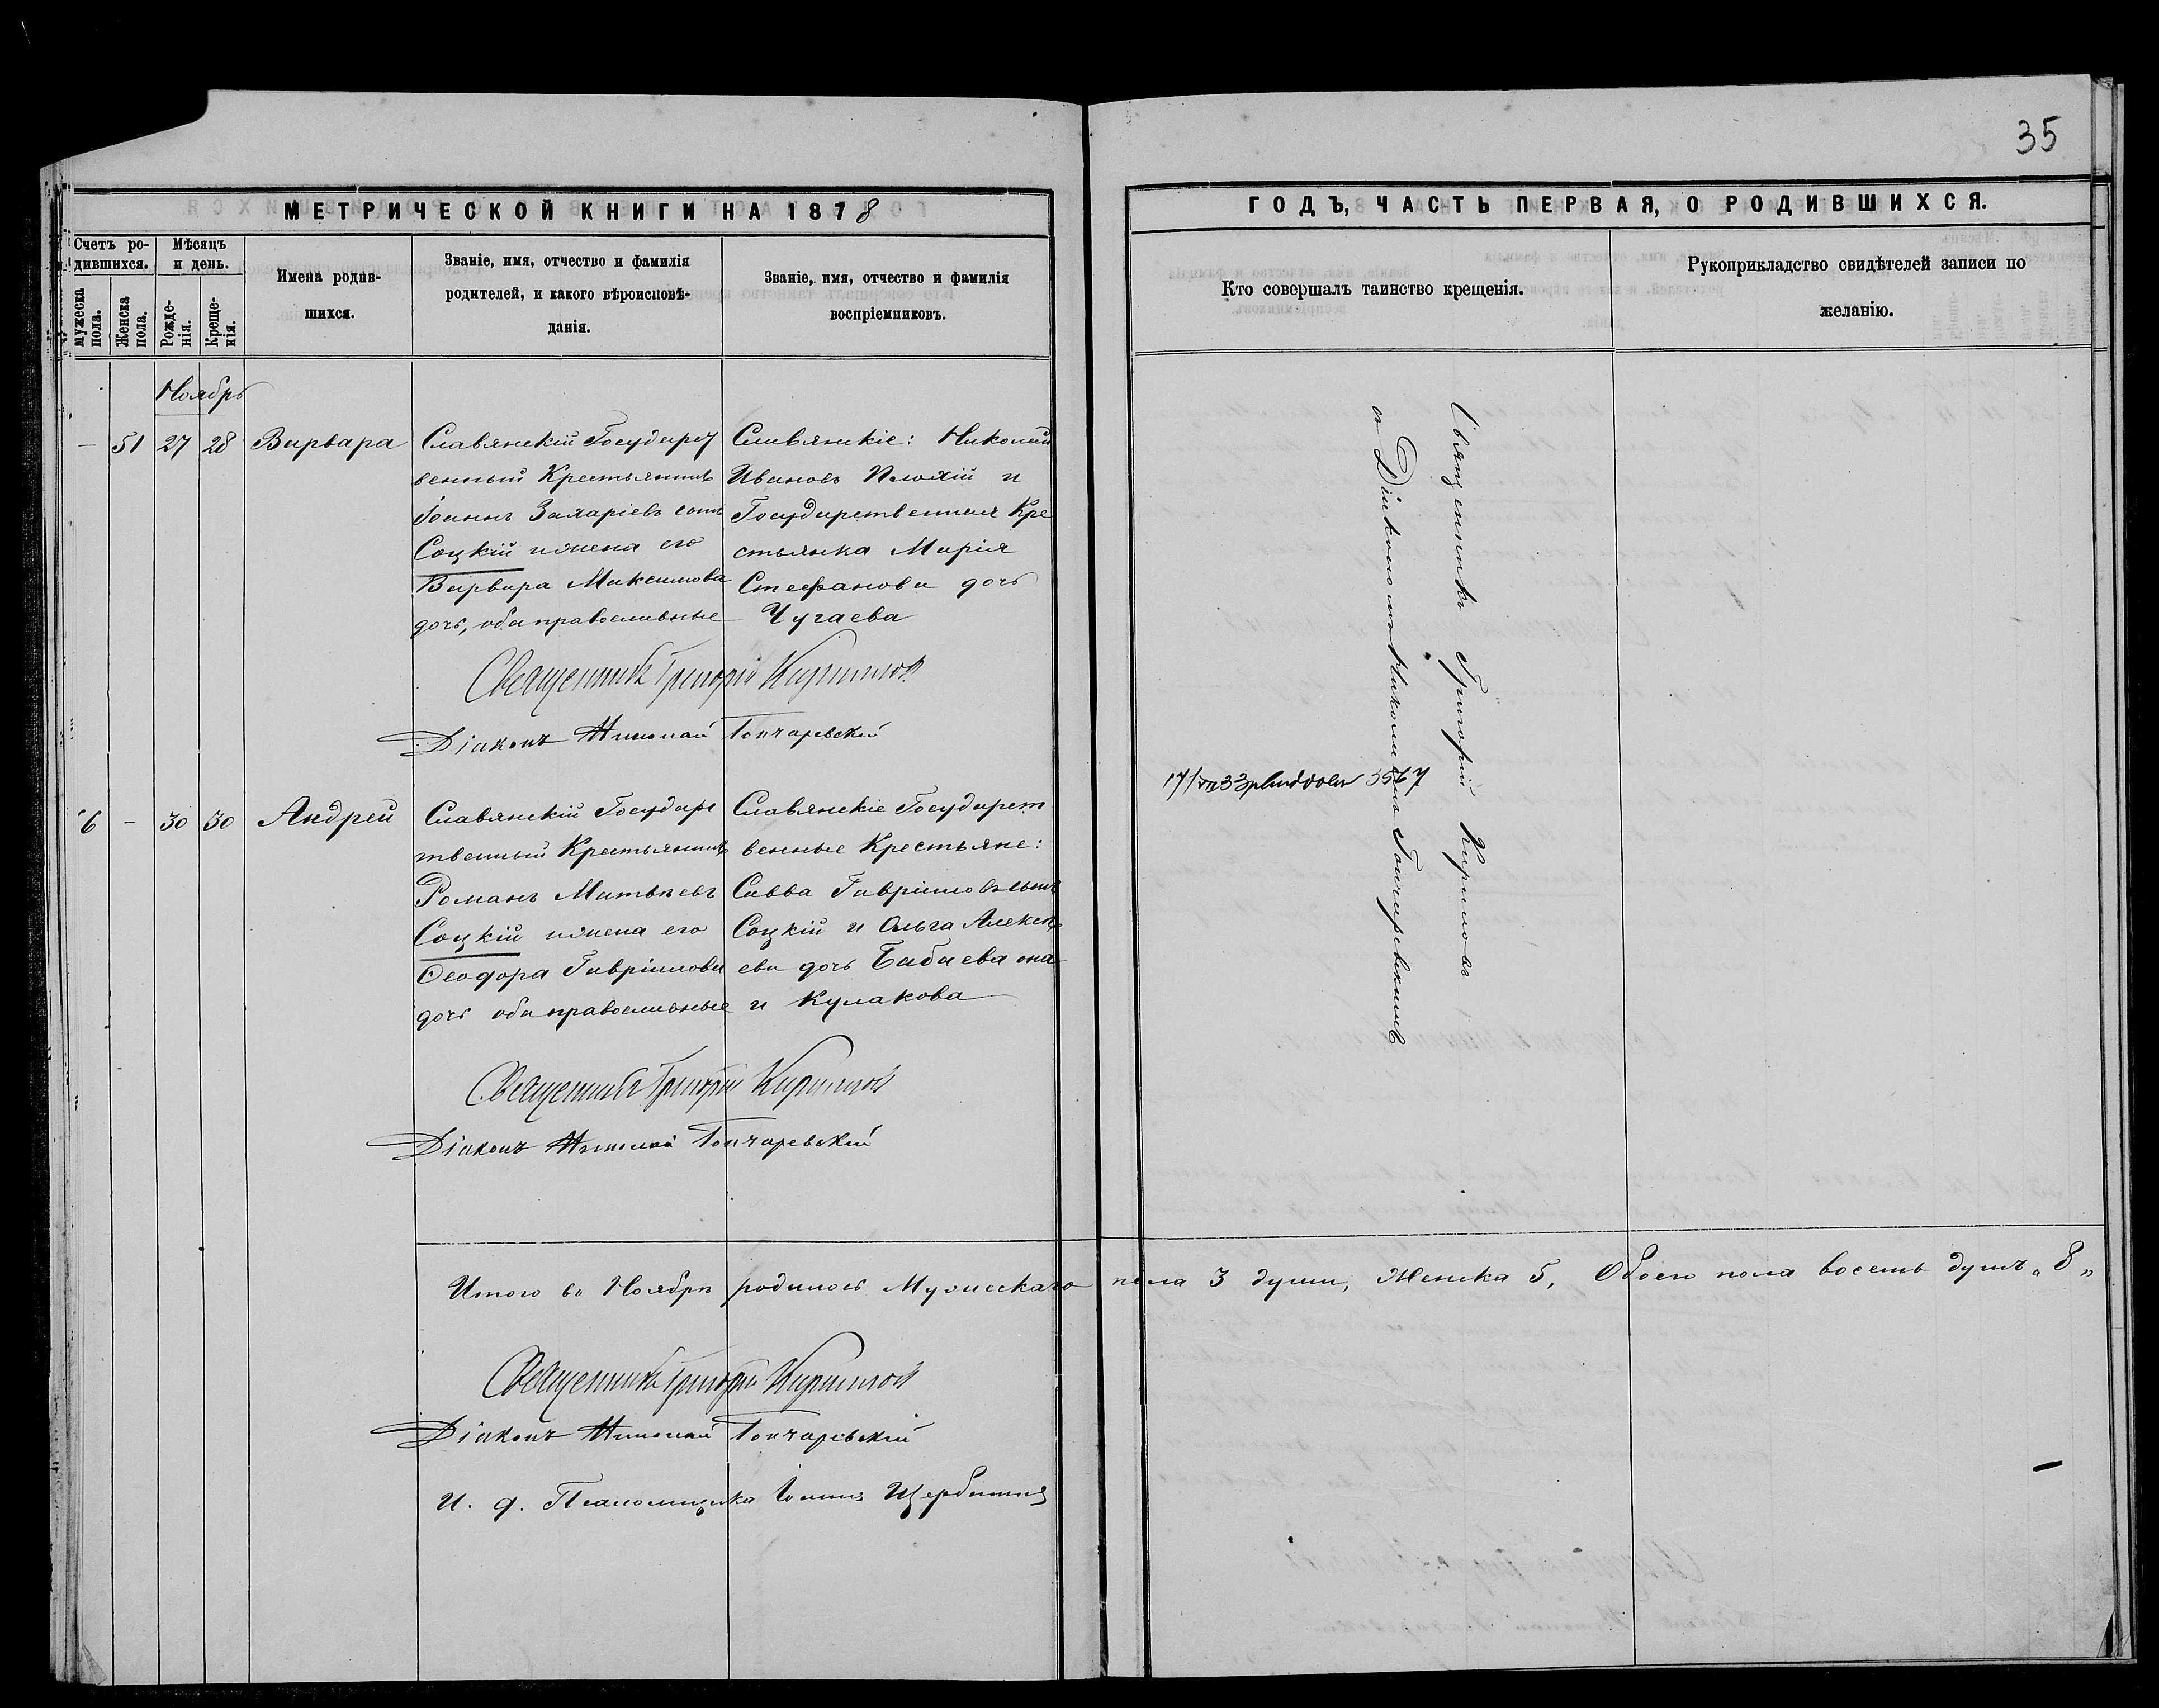 35
МЕТРИЧЕСКОЙ КНИГИ НА 1878
ГОДЪ, ЧАСТЬ ПЕРВАЯ, О РОДИВШИХСЯ.
Счетъ ро-
дившихся.
мужеска
пола.
Женска
пола.
Мѣсяцъ
и день.
Рожде-
нія.
Креще-
нія.
Имена родив-
шихся.
Званіе, имя, отчество и фамилія
родителей, и какого вѣроисповѣ-
данія.
Званіе, имя, отчество и фамилія
воспріемниковъ.
Кто совершалъ таинство крещенія.
Рукоприкладство свидѣтелей записи по
желанію.
Ноябрь
— 51 27 28 Варвара
Славянскій Государст
венный Крестьянинъ
Іоаннъ Захаріевъ сынъ
Соцкій и жена его
Варвара Максимова
дочь, оба православные
Славянскіе: Николай
Ивановъ и
Государственная Кре
стьянка Марія
Стефанова дочь
Чугаева
Священникъ Григорій Кириловъ
Діаконъ Николай Гончаревскій
Священникъ Григорій Кириловъ
съ Діакономъ Николаемъ Гончаревскимъ
6 — 30 30 Андрей
Славянскій Государс
твенный Крестьянинъ
Романъ Матвѣевъ
Соцкій и жена его
Ѳеодора Гавріилова
дочь оба православные
Славянскіе Государст
венные Крестьяне:
Савва Гавріиловъ сынъ
Соцкій и Ольга Алексѣ
ева дочь Бабаева она
и Кулакова
Священникъ Григорій Кириловъ
Діаконъ Николай Гончаревскій
Итого въ Ноябрѣ родилось Мужескаго пола 3 души, Женска 5, Обоего пола восемь душъ „8„
Священникъ Григорій Кириловъ
Діаконъ Николай Гончаревскій
И. д. Псаломщика Іоаннъ Щербина